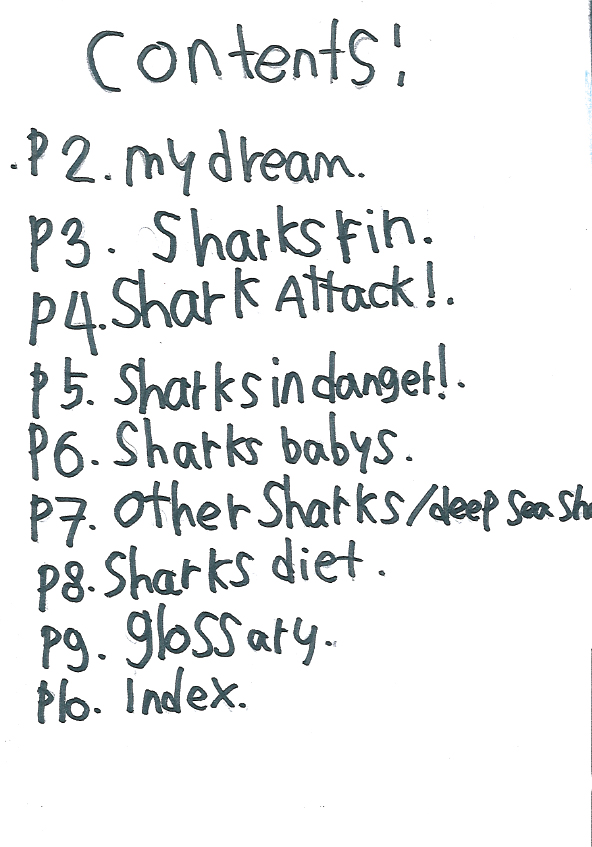 Contents!
.P2. my dream.
P3. Sharks Fin.
P4. Shark Attack!.
P5. Sharks in danger!.
P6. Sharks babys.
P7. Other Sharks/deep Sea
P8. Sharks diet.
P9. glossary.
P10. Index.